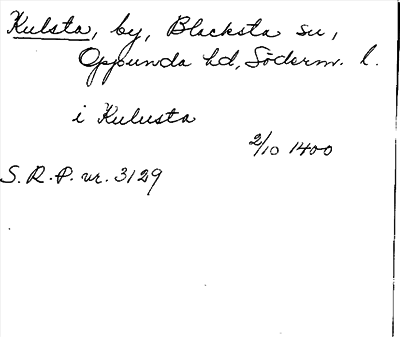 Kulsta, by, Blacksta su,
Oppunda hd, Söderm. l.
i Kulusta
2/10 1400
S. R. P. nr. 3129